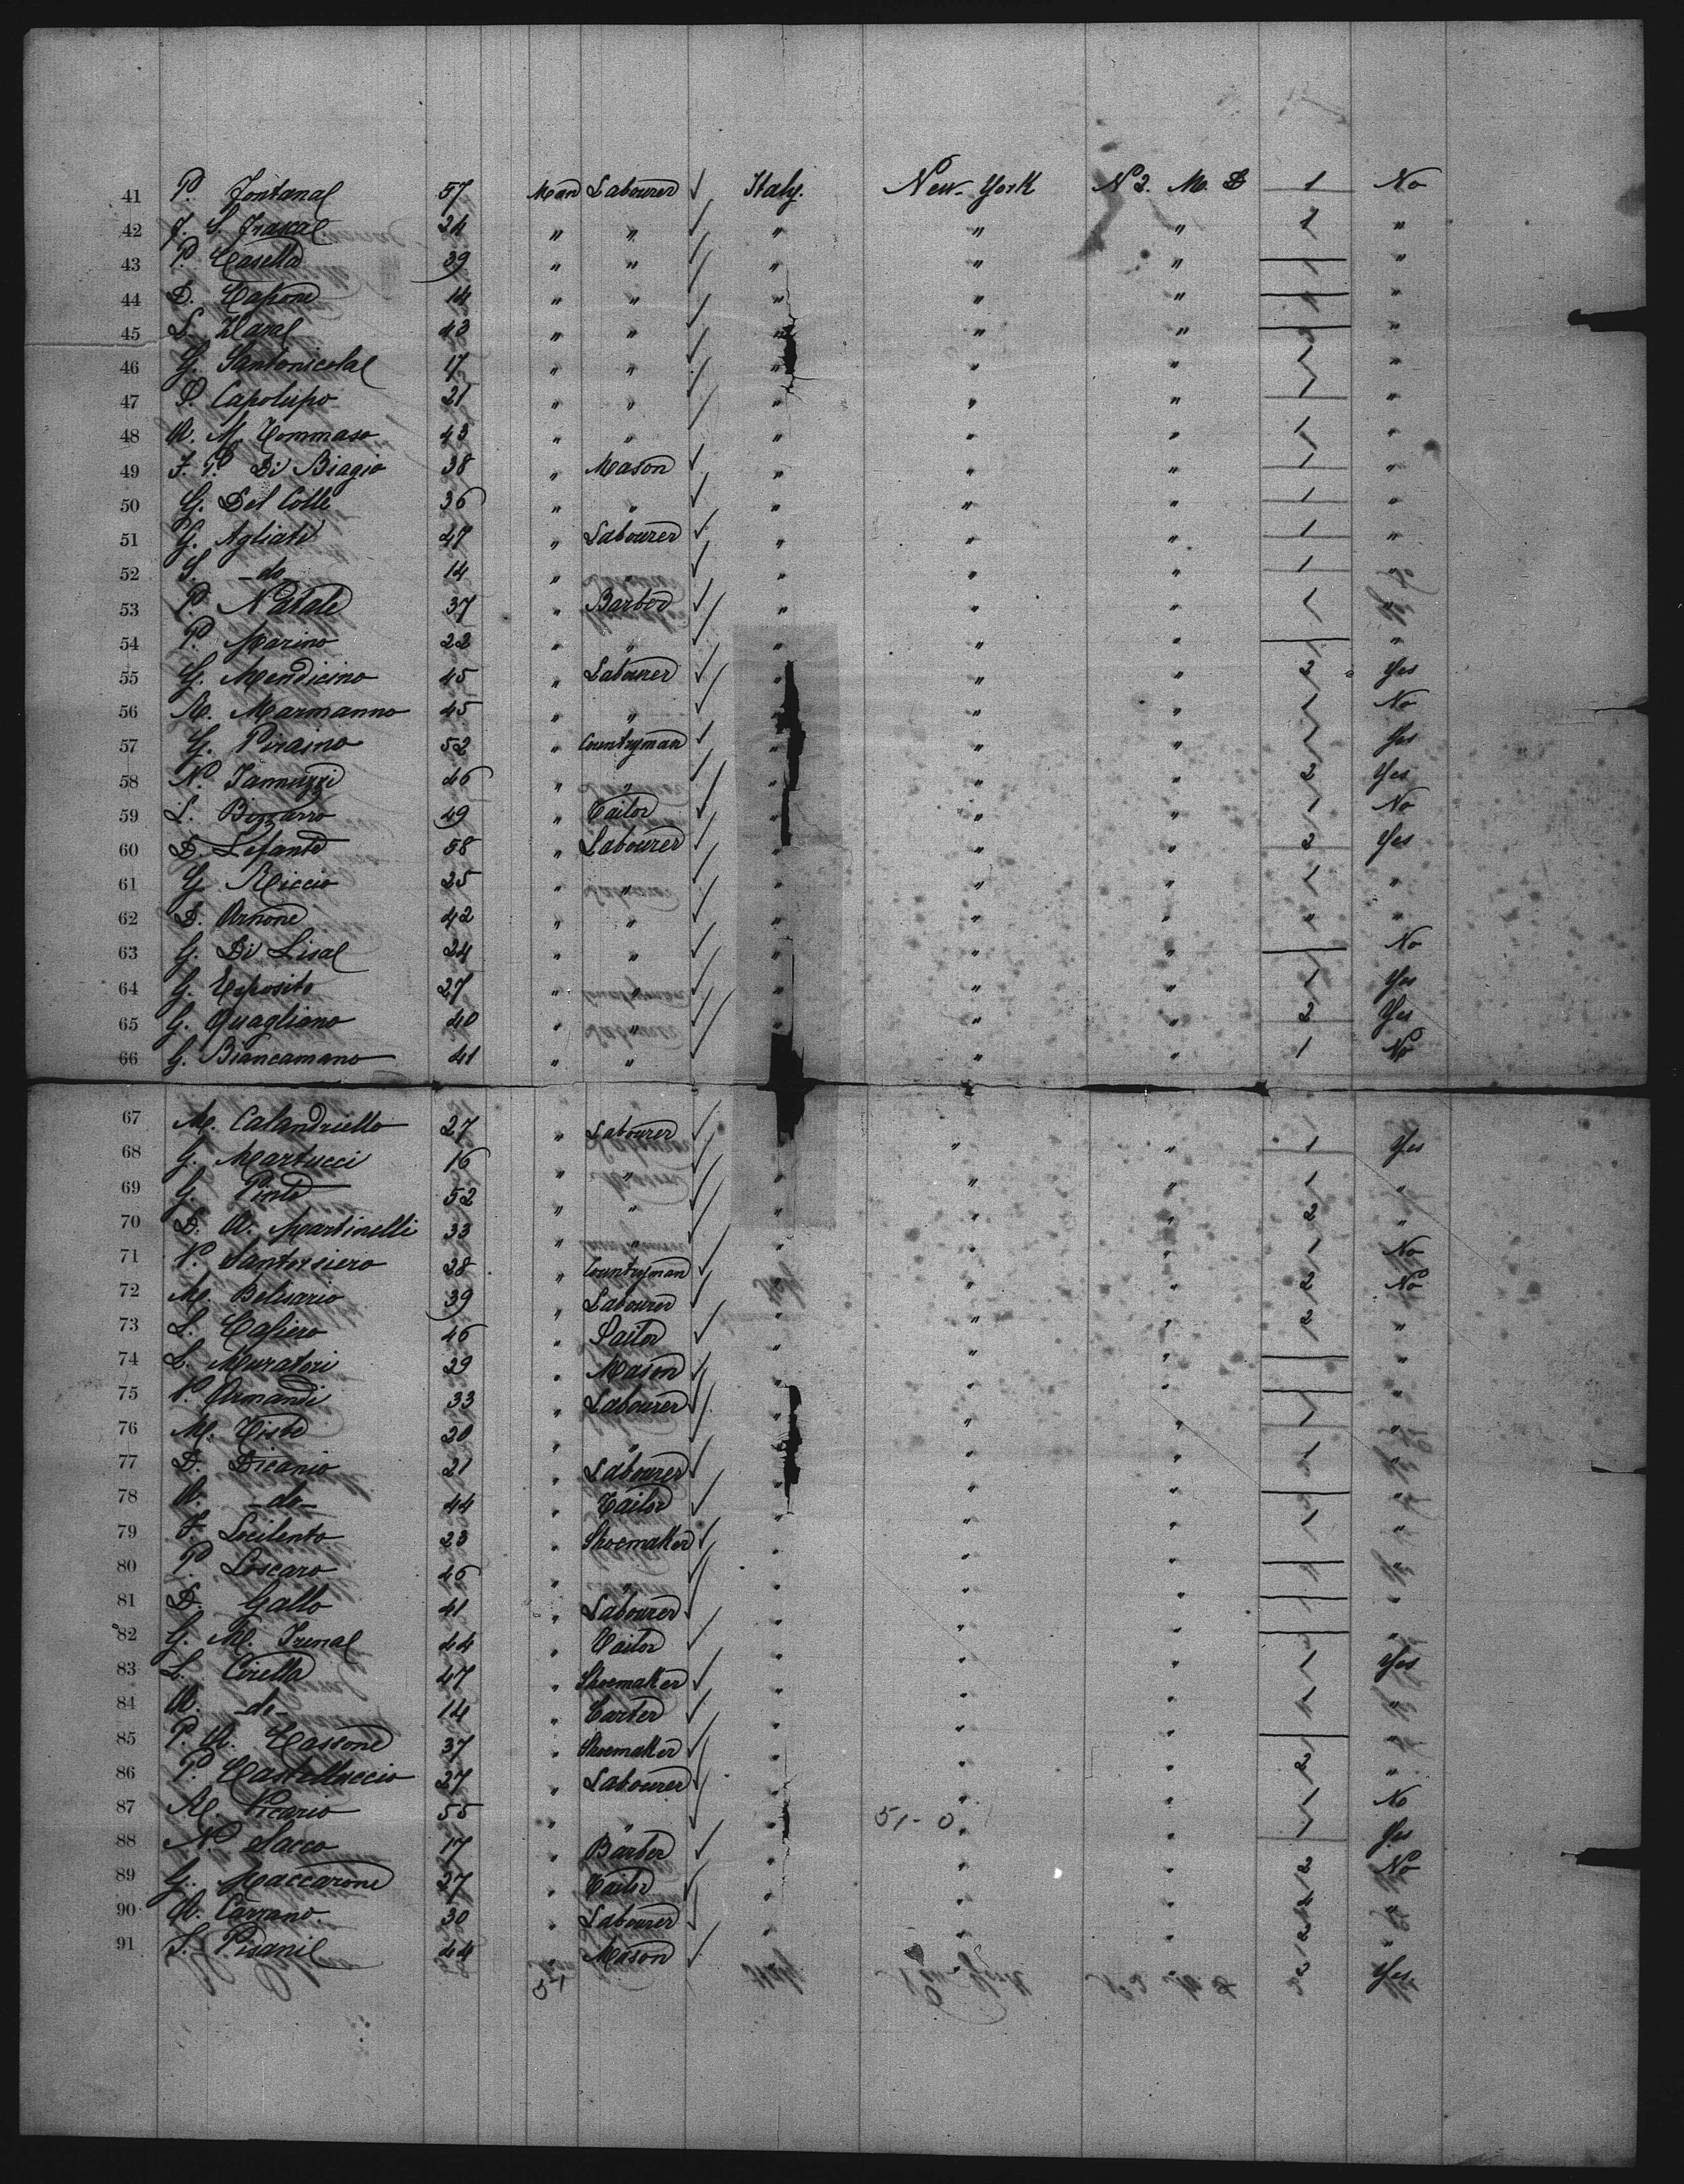 41 P. Fontana 57 Man Labourer ✓ Italy. New-York N 2. M. D 1 No
42 F. S. 24 " " ✓ " " " 1 "
43 P. Casella 39 " " ✓ " " " 1 "
44 D. Capone 14 " " ✓ " " " 1 "
45 43 " " ✓ " " " "
46 G. Santonicola 17 " " ✓ " " " 1 "
47 P. Capolupo 21 " " ✓ " " " 1 "
48 A. M. Tommaso 43 " " ✓ " " " 1 "
49 F. P. Di Biagio 38 " Mason ✓ " " " 1 "
50 G. Del Colle 36 " " ✓ " " " 1 "
51 G. Agliati 47 " Labourer ✓ " " " 1 "
52 S. -do 14 " " ✓ " " " 1 "
53 P. Natale 37 " Barber ✓ " " " 1 "
54 P. Marino 22 " " ✓ " " " "
55 G. Mendicino 45 " Labourer ✓ " " " 2 Yes
56 R. Marmanno 45 " " ✓ " " " 1 No
57 G. Piraino 52 " Countryman ✓ " " " 1 Yes
58 N. Iannuzzi 46 " " ✓ " " " 2 Yes
59 L. Bizzarro 49 " Tailor ✓ " " " 1 No
60 D. Lefante 58 " Labourer ✓ " " " 2 Yes
61 G. Riccio 25 " " ✓ " " " 1 "
62 D. Arnone 42 " " ✓ " " " " "
63 G. Di Lisa 24 " " ✓ " " " No
64 G. Esposito 27 " " ✓ " " " 1 Yes
65 G. Quagliano 40 " " ✓ " " " 2 Yes
66 G. Biancamano 41 " " ✓ " " 1 No
67 M. Calandriello 27 " Labourer ✓ " " 1 Yes
68 G. Martucci 16 " " ✓ " " " 1 "
69 G. 52 " " ✓ " " " 2 "
70 D. A. Martinelli 33 " " ✓ " " " 1 No
71 V. Santorsiero 28 " Countryman ✓ " " " 2 No
72 M. Belisario 39 " Labourer ✓ " " " 2 "
73 L. Casiero 46 " Sailor ✓ " " " "
74 L. Muratori 29 " Mason ✓ " " " "
75 V. Armandi 33 " Labourer ✓ " " " 1 "
76 M. 20 " " ✓ " " " 1 "
77 D. Dicanio 21 " Labourer ✓ " " " "
78 A. -do- 44 " Tailor ✓ " " " 1 "
79 F. Locilento 23 " Shoemaker ✓ " " " "
80 P. Loscaro 46 " " ✓ " " " "
81 D. Gallo 41 " Labourer ✓ " " " "
82 G. M. 44 " Tailor ✓ " " " 1 Yes
83 L. Cirella 47 " Shoemaker ✓ " " " 1 "
84 A. -do- 14 " Carter ✓ " " " "
85 P. A. Cassone 37 " Shoemaker ✓ " " " 2 "
86 P. Castelluccio 27 " Labourer ✓ " " " 1 No
87 M. Vicario 55 " " " 51-0 " " 1 Yes
88 N. Sacco 17 " Barber ✓ " " " 2 No
89 G. Maccarone 27 " Tailor ✓ " " " 2 "
90 A. Carrano. 30 " Labourer ✓ " " " 2 "
91 S. Pisani 44 " Mason ✓ " " " 2 Yes.
51